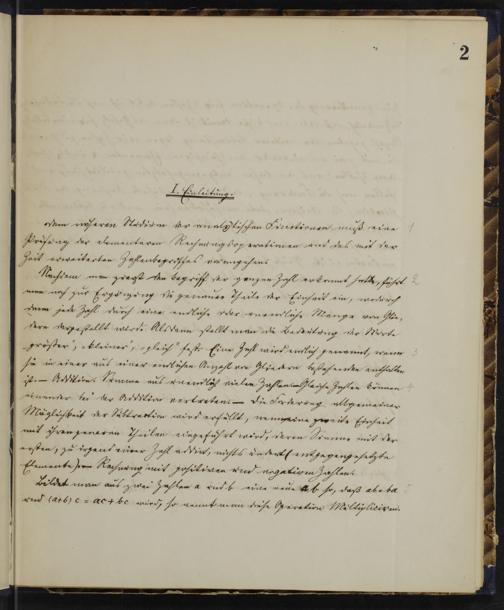 2
I. Einleitung.
Dem näheren Studium der analytischen Functionen muß eine 1
Prüfung der elementaren Rechnungsoperationen und des mit der
Zeit erweiterten Zahlenbegriffes vorangehen.
Nachdem man zuerst den Begriff der ganzen Zahl erkannt hatte, führt 2
man noch zur Ergänzung die genauen Theile der Einheit ein, wodurch
dann jede Zahl durch eine endliche oder unendliche Menge von Glie-
dern dargestellt wird. Alsdann stellt man die Bedeutung der Worte
„größer“, „kleiner“, „gleich“ fest. Eine Zahl wird endlich genannt, wenn 3
sie in einer aus einer endlichen Anzahl von Gliedern bestehenden enthalten
ist. — Addition. Summe aus unendlich vielen Zahlen. — Gleiche Zahlen können 4
einander bei der Addition vertreten. — Die Forderung allgemeiner
Möglichkeit der Subtraction wird erfüllt, wenn eine zweite Einheit
mit ihren genauen Theilen eingeführt wird, deren Summe mit der
ersten, zu irgend einer Zahl addirt, nichts ändert (entgegengesetzte
Elemente). — Rechnung mit positiven und negativen Zahlen.
Bildet man aus zwei Zahlen a und b eine neue ab so, daß ab = ba 5
und (a+b) c = ac + bc wird, so nennt man diese Operation Multipliciren.